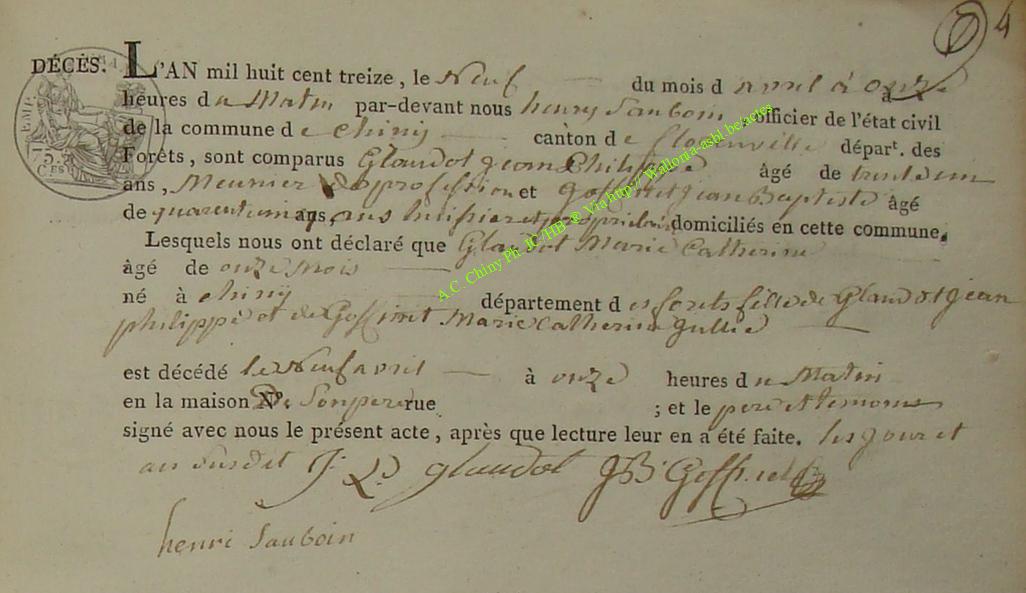 4
DÉCÈS. L'AN mil huit cent treize, le Neuf du mois d avril à onze
heures du Matin par-devant nous henry Sauboin officier de l'état civil
de la commune de chiny canton de florenville départ. des
Forêts, sont comparus Glaudot jean Philippe âgé de
ans, Meunier de profession et goffinet jean Baptiste âgé
de ans, domiciliés en cette commune.
Lesquels nous ont déclaré que Glaudot Marie Catherine
âgé de onze mois
né à chiny département des forets fille de Glaudot jean
philippe et de Goffinet Marie Catherine
est décédé le Neuf avril à onze heures du Matin
en la maison de Son pere rue ; et le pere et temoins
signé avec nous le présent acte, après que lecture leur en a été faite. les jour et
an susdit J. P. glaudot JB Goffinet
henri Sauboin
A.C. Chiny Ph. JC/HB @ Via http://Wallonia-asbl.be/actes